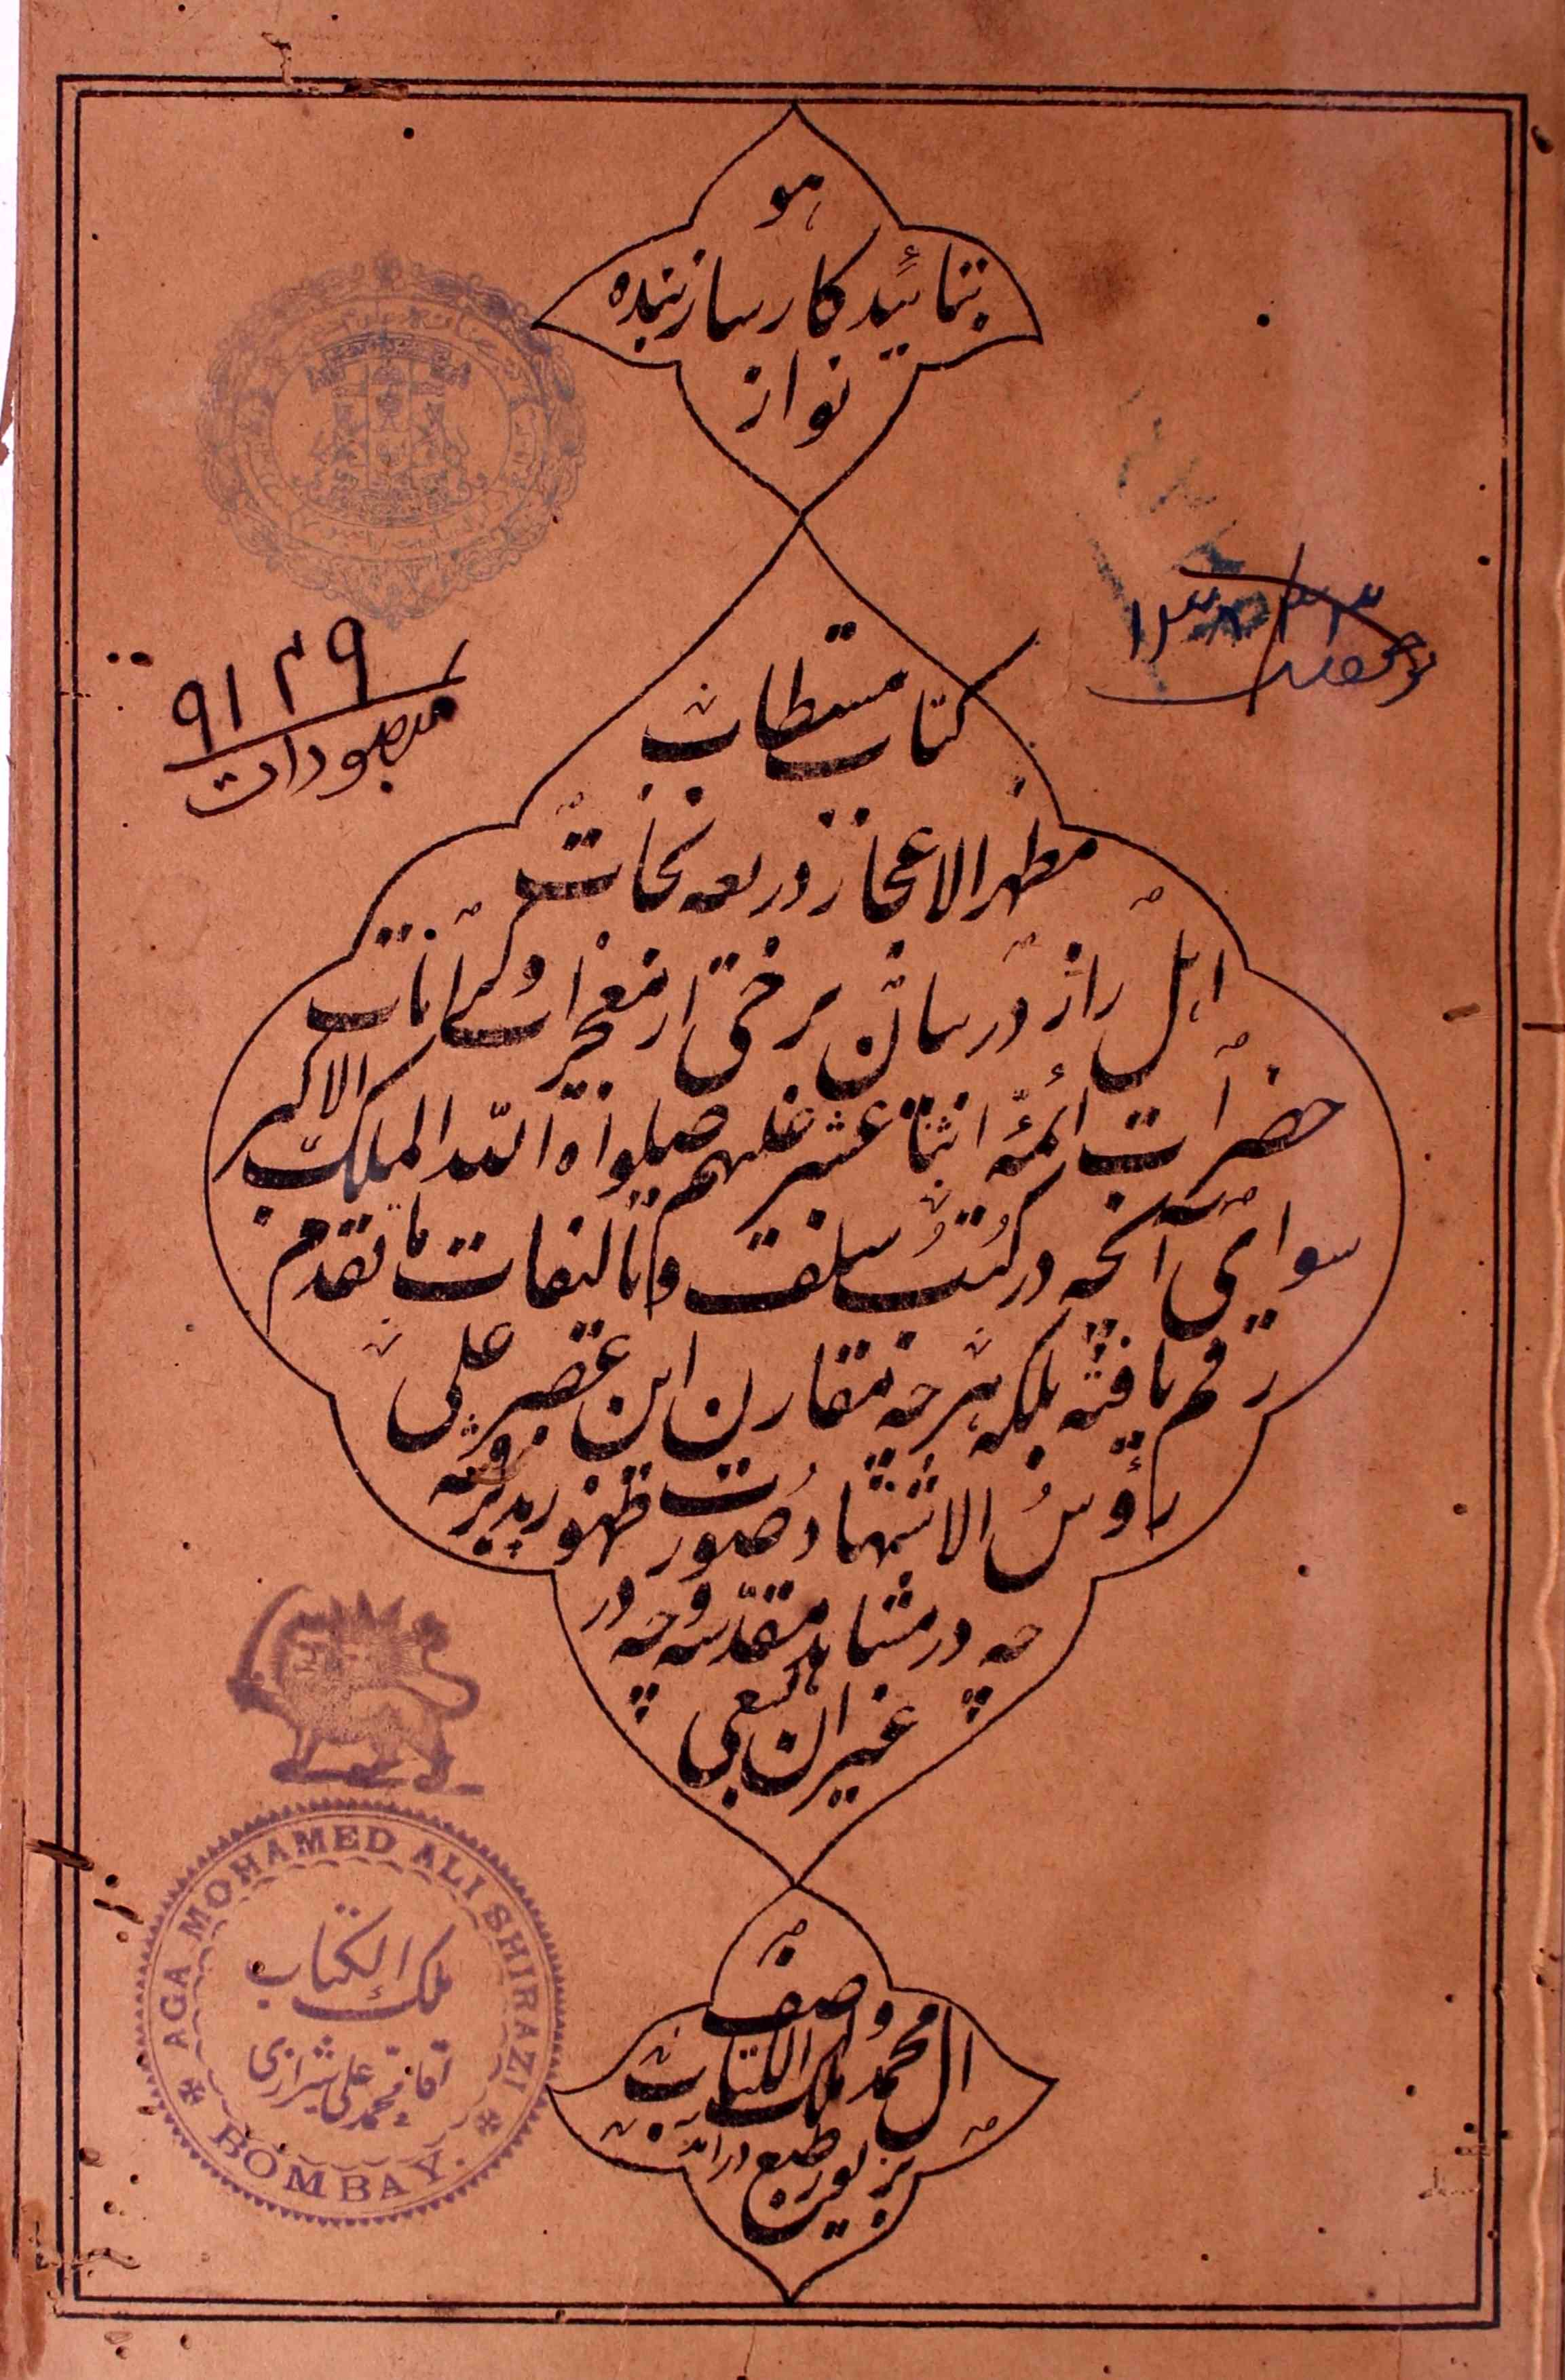 هو
بتائید کارساز بنده
نواز
کتاب مستطاب
مظهر الاعجاز و ذریعه نجات
اهل راز در بیان برخی از معجزات و کرامات
حضرات ائمّه اثنا عشر علیهم صلواة الله الملک الاکبر
سوای آنچه در کتب سلف و تالیفات ما تقدم
رقم یافته بلکه هر چه مقارن این عصر علی
رؤس الاشهاد صورت ظهور پذیرفته
چه در مشاهد مقدّسه و چه در
غیر آن بسعی
وصاف
ال محمد ملک الکتاب
بزیور طبع درآمد
۹۱۲۹
AGA MOHAMED ALI SHIRAZI
ملک الکتاب
آقا میرزا محمد علی شیرازی
BOMBAY.